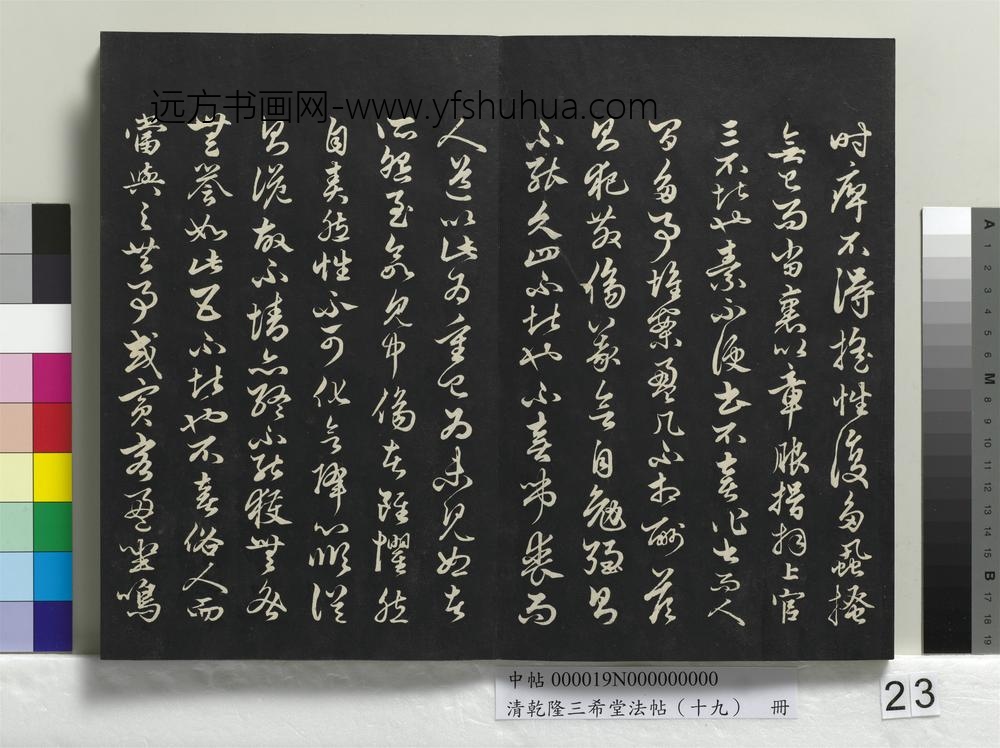 远方书画网-www.yfshuhua.com
時痺不得搖性復多蝨搔
無已而當裹以章服揖拜上官
三不堪也素不便書不喜作書而人
間多事堆案盈几不相酬答
則犯教傷義欲自勉強則
不能久四不堪也不喜弔喪而
人道以此為重已為未見恕者
所怨至欲見中傷者雖懼然
自責然性不可化欲降心順俗
則詭故不情亦終不能獲無咎
無譽如此五不堪也不喜俗人而
當與之共事或賓客盈坐鳴
中帖 000019N000000000
清乾隆三希堂法帖（十九） 冊
23
A 1 2 3 4 5 6 M 8 9 10 11 12 13 14 15 B 17 18 19